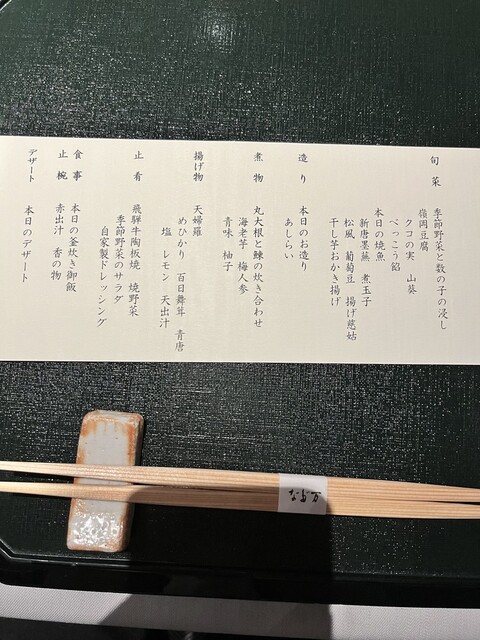 旬菜
季節野菜と数の子の浸し
嶺岡豆腐
タコの実 山葵
べっこう餡
本日の焼魚
新唐墨蕪 煮玉子
松風 葡萄豆 揚げ慈姑
干し芋おかき揚げ
造り 本日のお造り
あしらい
煮物 丸大根と鰊の炊き合わせ
海老芋 梅人参
青味 柚子
揚げ物 天婦羅
めひかり 百日舞茸 青唐
塩 レモン 天出汁
止肴 飛騨牛陶板焼 焼野菜
季節野菜のサラダ
自家製ドレッシング
食事 本日の釜炊き御飯
止椀 赤出汁 香の物
デザート 本日のデザート